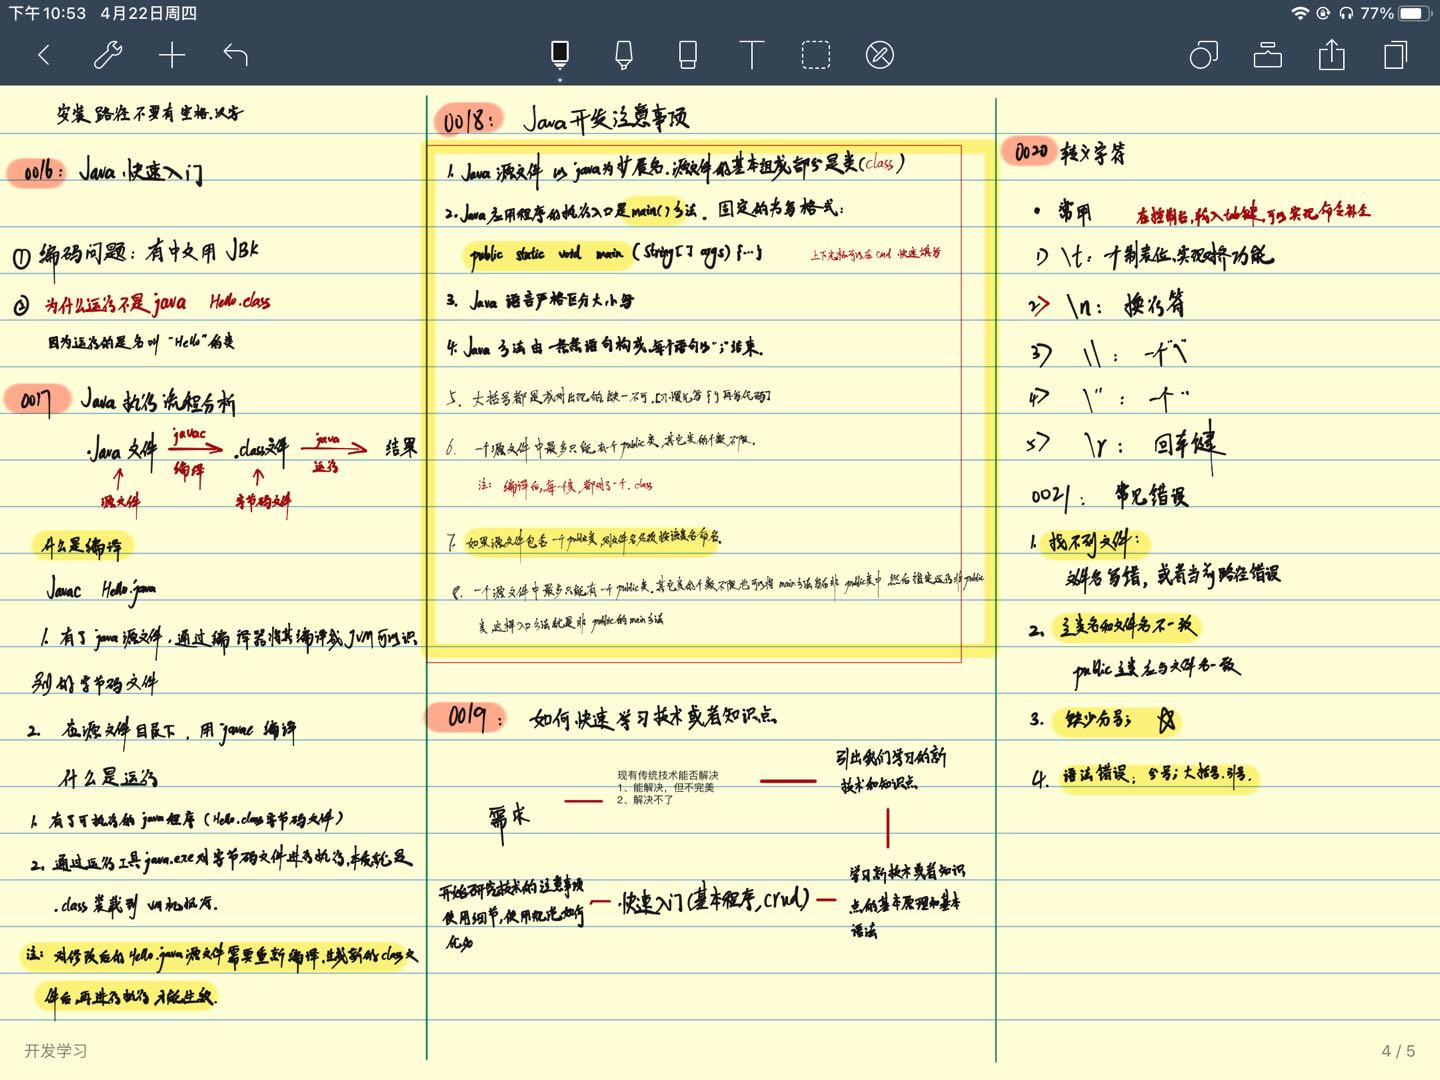 下午10:53 4月22日周四
77%
安装路径不要有空格.汉字
0016: Java 快速入门
① 编码问题: 有中文用 JBK
② 为什么运行不是 java Hello.class
因为运行的是名叫 "Hello" 的类
0017 Java 执行流程分析
.Java 文件 javac 编译 .class文件 java 运行 结果
源文件 字节码文件
什么是编译
Javac Hello.java
1. 有了 java 源文件, 通过编译器将其编译成 JVM 可以识
别的字节码文件
2. 在源文件目录下, 用 javac 编译
什么是运行
1. 有了可执行的 java 程序 (Hello.class字节码文件)
2. 通过运行工具 java.exe 对字节码文件进行执行, 本质就是
.class 装载到 vm 机执行.
注: 对修改后的 Hello.java 源文件需要重新编译, 生成新的 class 文
件后, 再进行执行, 才能生效.
0018: Java 开发注意事项
1. Java 源文件 以 java 为扩展名. 源文件的基本组成部分是类 (class)
2. Java 应用程序的执行入口是 main() 方法. 固定的书写格式:
public static void main (String[] args) {...}
上下光标可以在 cmd 快速填写
3. Java 语言严格区分大小写
4. Java 方法由一条条语句构成, 每个语句以";"结束.
5. 大括号都是成对出现的, 缺一不可. [习惯先写 { } 再写代码]
6. 一个源文件中最多只能有一个 public 类, 其它类的个数不限.
注: 编译后, 每一个类, 都对应一个 .class
7. 如果源文件包含一个 public 类, 则文件名必须按该类名命名.
8. 一个源文件中最多只能有一个 public 类. 其它类的个数不限, 也可以将 main 方法写在非 public 类中, 然后指定运行非 public
类, 这样入口方法就是非 public 的 main 方法
0019: 如何快速学习技术或者知识点
需求
现有传统技术能否解决
1、能解决, 但不完美
2、解决不了
引出我们学习的新
技术和知识点
学习新技术或者知识
点的基本原理和基本
语法
快速入门 (基本程序, crud)
开始研究技术的注意事项
使用细节, 使用规范, 如何
优化
0020 转义字符
• 常用 在控制台, 输入 tab 键, 可以实现命令补全
1) \t: 一个制表位, 实现对齐功能
2) \n: 换行符
3) \\: 一个"\"
4) \": 一个 "
5) \r: 回车键
0021: 常见错误
1. 找不到文件:
文件名写错, 或者当前路径错误
2. 主类名和文件名不一致
public 主类应与文件名一致
3. 缺少分号; ☆
4. 语法错误; 分号; 大括号. 引号.
开发学习
4 / 5